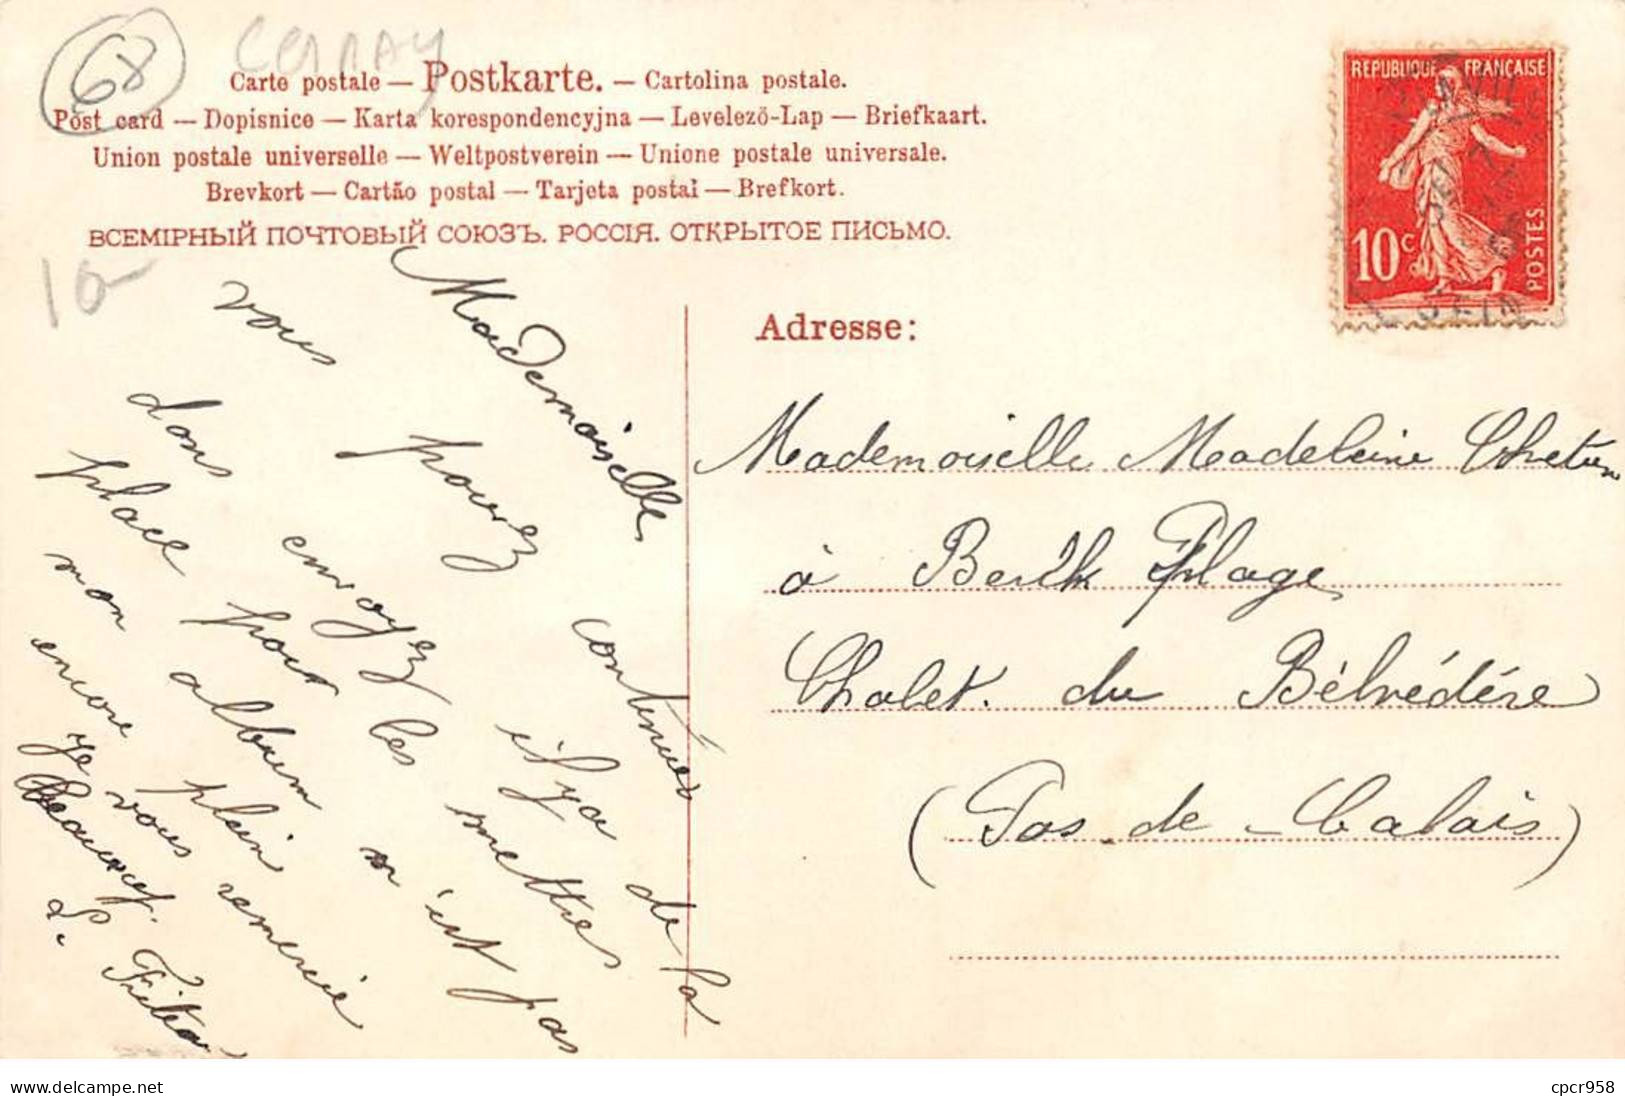 68 CERNAY
Carte postale — Postkarte. — Cartolina postale.
Post card — Dopisnice — Karta korespondencyjna — Levelező-Lap — Briefkaart.
Union postale universelle — Weltpostverein — Unione postale universale.
Brevkort — Cartão postal — Tarjeta postal — Brefkort.
ВСЕМІРНЫЙ ПОЧТОВЫЙ СОЮЗЪ. РОССІЯ. ОТКРЫТОЕ ПИСЬМО.
10-
REPUBLIQUE FRANÇAISE
10c
POSTES
Mademoiselle
vous pouvez continuer
dans envoyez il y a de la
place pour les mettres
mon album n'est pas
encore plein
je vous remercie
beaucoup.
L.
Adresse:
Mademoiselle Madeleine Chretien
à Berck Plage
Chalet. du Bélvédére
(Pas-de-Calais)
delcampe.net
cpcr958